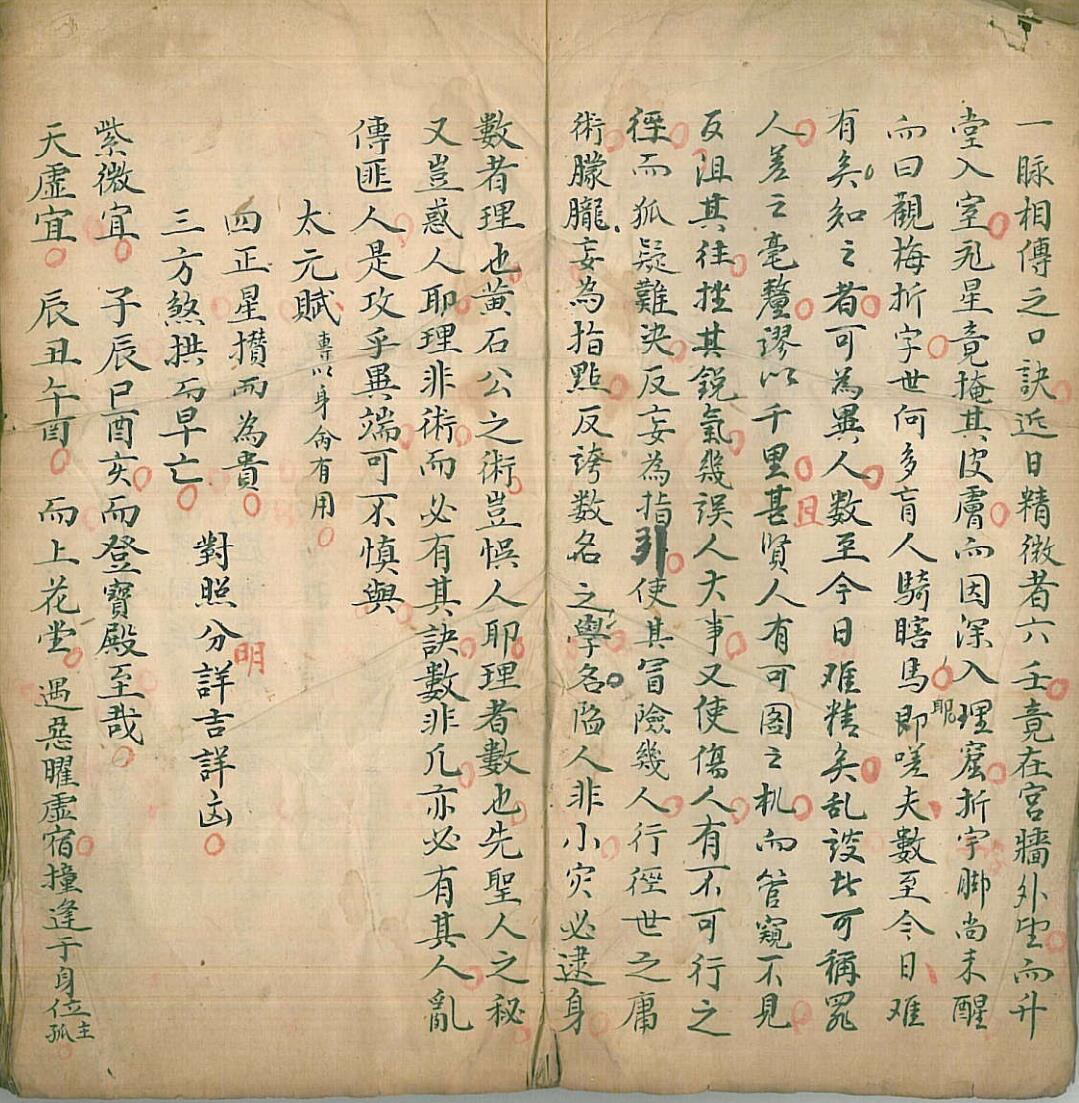 一脉相傳之口訣近日精微者六壬竟在宮牆外望而升
堂入室九星竟掩其皮膚而因深入理窟折字脚尚未醒
而曰觀梅折字世何多盲人騎瞎馬即嗟夫數至今日难
有矣知之者可為異人數至今日难精矣乱談此可稱罪
人差之毫釐謬以千里甚且賢人有可圖之机而管窺不見
反沮其往挫其銳氣幾誤人大事又使傷人有不可行之
徑而狐疑難決反妄為指引使其冒險幾人行徑世之庸
術朦朧妄為指點反誇数名之學名陷人非小灾必逮身
數者理也黄石公之術豈悞人耶理者數也先聖人之秘
又豈惑人耶理非術而必有其訣數非几亦必有其人亂
傳匪人是攻乎異端可不慎與
太元賦專以身命有用
四正星攢而為貴
三方煞拱而早亡
對照分明詳吉詳凶
紫微宜子辰巳酉亥而登寶殿至哉
天虛宜辰丑午酉而上花堂遇惡曜虛宿撞逢于身位主孤